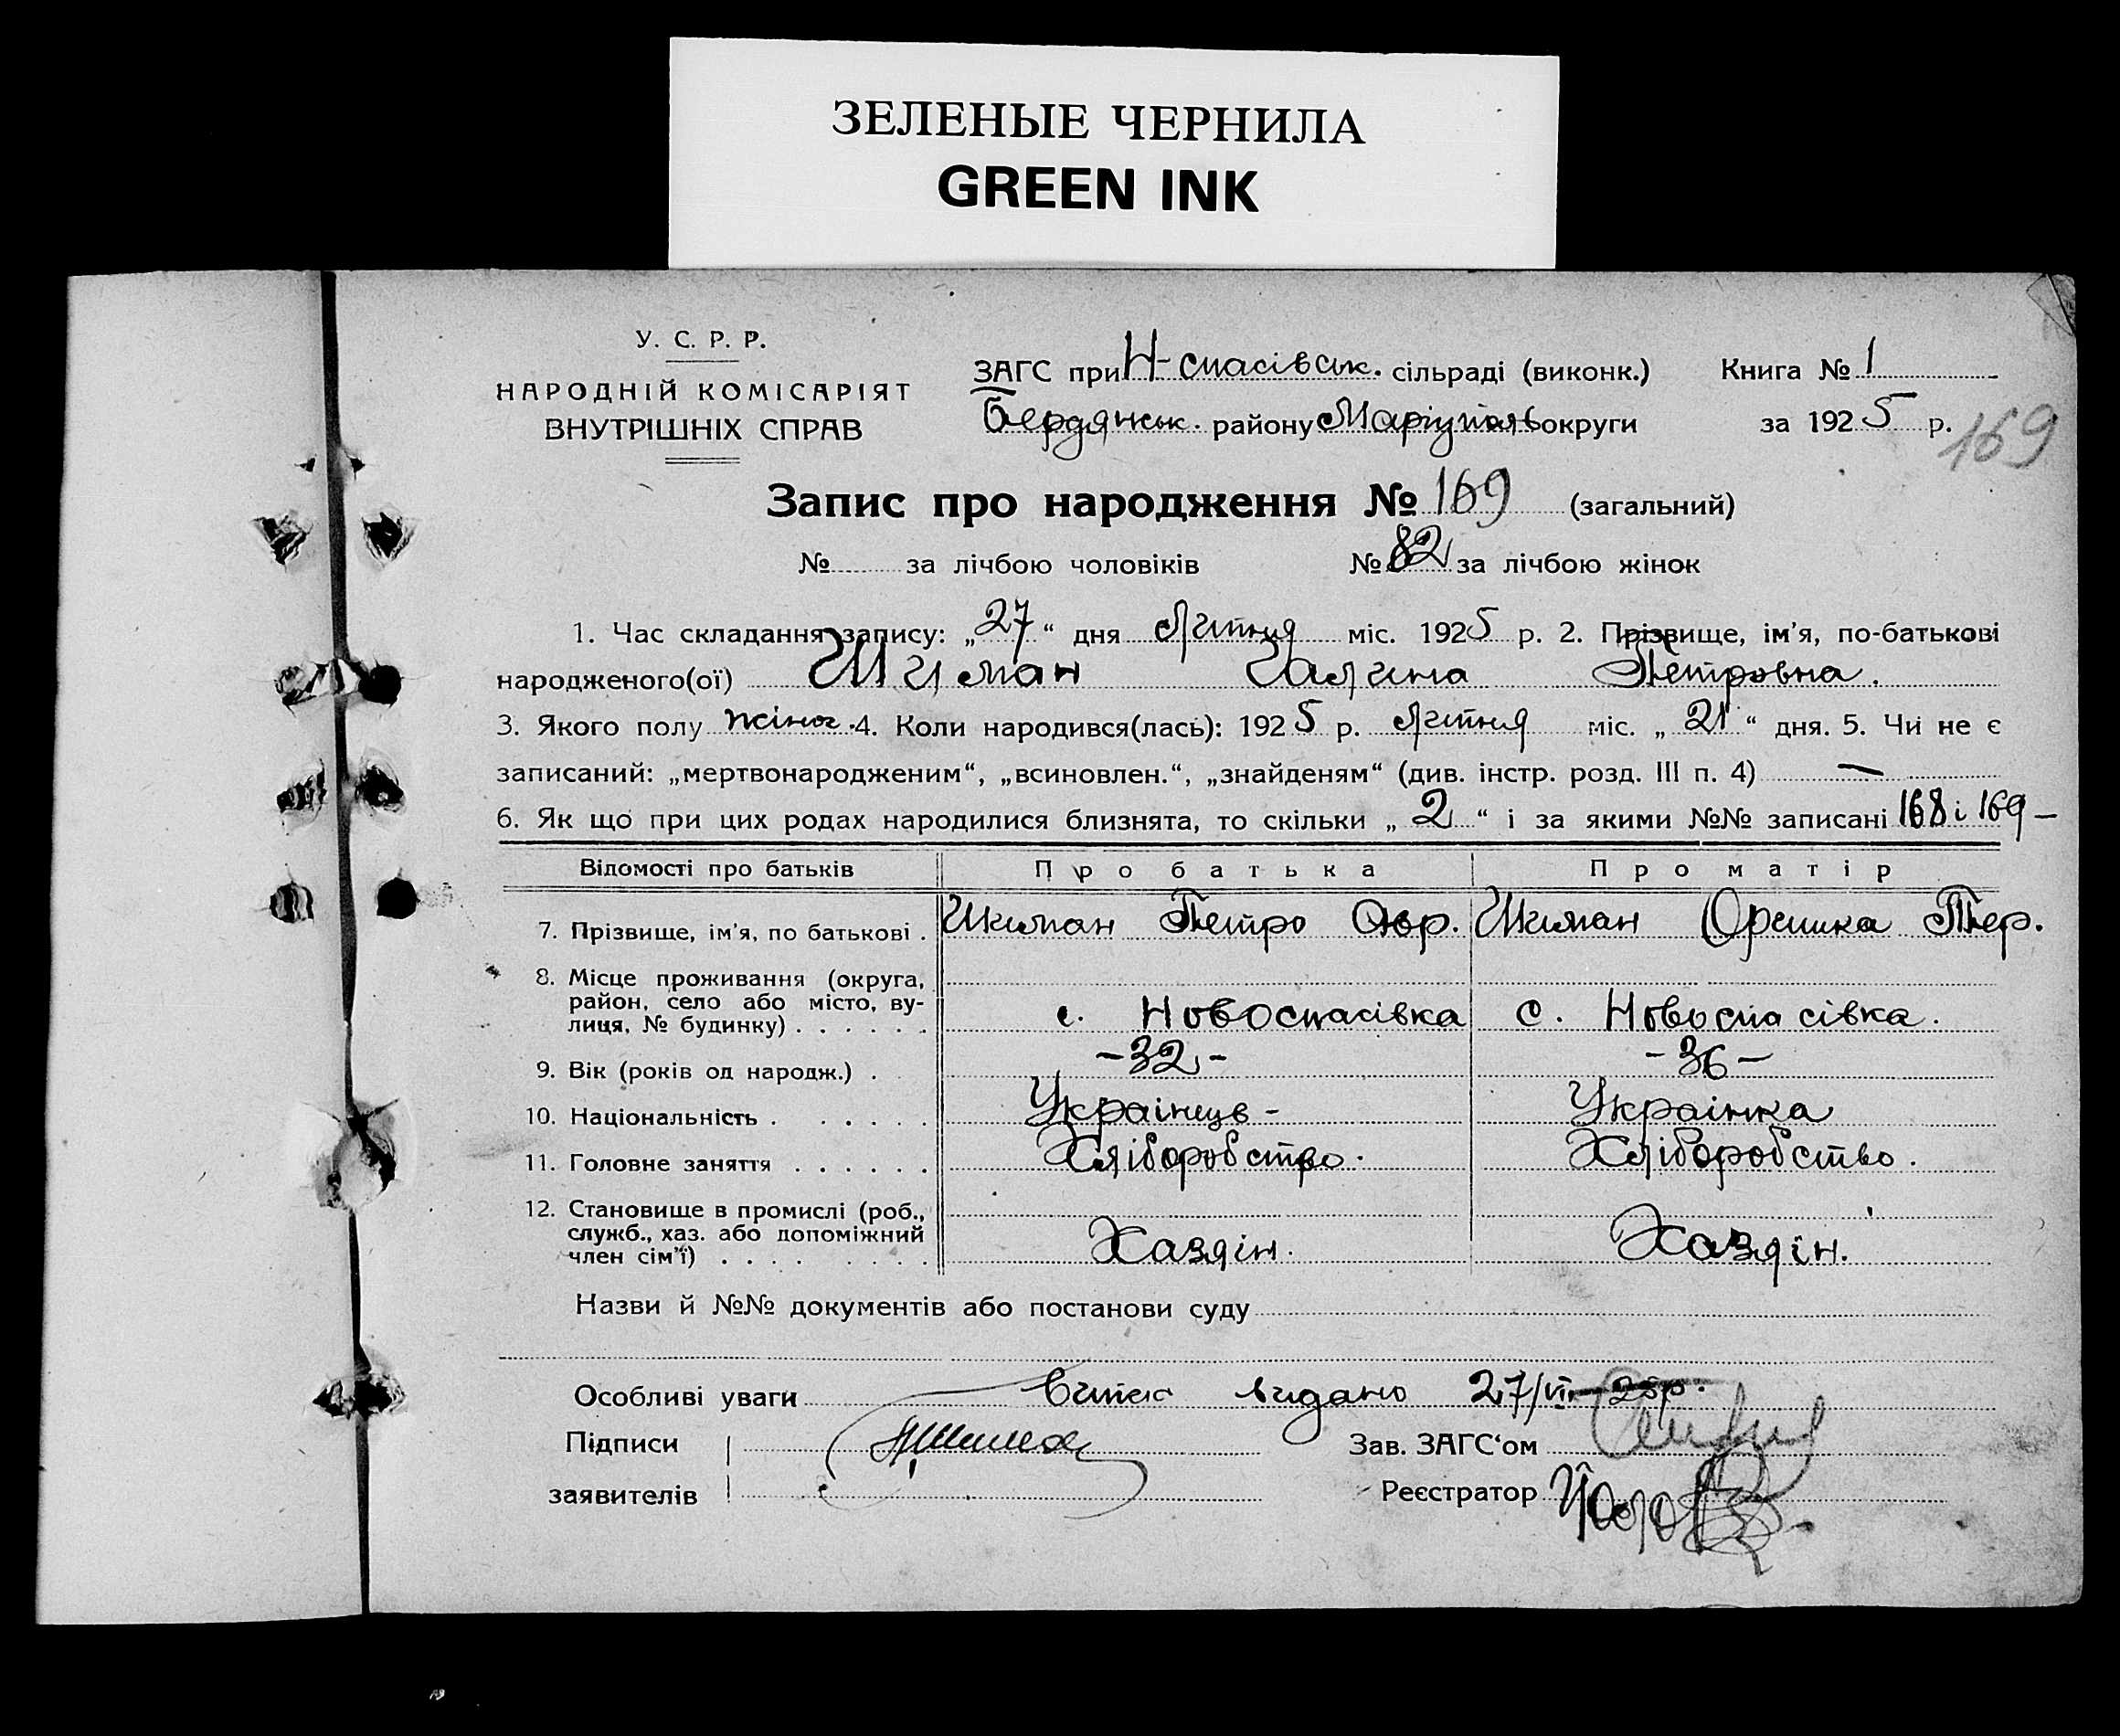 ЗЕЛЕНЫЕ ЧЕРНИЛА
GREEN INK
У. С. Р. Р.
НАРОДНІЙ КОМІСАРІЯТ
ВНУТРІШНІХ СПРАВ
ЗАГС при Н-спасівськ. сільраді (виконк.)
Бердянськ. району Маріупіль округи
Книга № 1
за 1925 р.
169
Запис про народження № 169 (загальний)
№ за лічбою чоловіків № 82 за лічбою жінок
1. Час складання запису: „27“ дня Литня міс. 1925 р. 2. Прізвище, ім'я, по-батькові
народженого(ої) Шиман Галина Петровна.
3. Якого полу жіноч. 4. Коли народився(лась): 1925 р. литня міс. „21“ дня. 5. Чи не є
записаний: „мертвонародженим“, „всиновлен.“, „знайденям“ (див. інстр. розд. III п. 4) —
6. Як що при цих родах народилися близнята, то скільки „2“ і за якими №№ записані 168 і 169 —
Відомості про батьків Про батька Про матір
7. Прізвище, ім'я, по батькові . Шиман Петро Шиман Оришка
8. Місце проживання (округа,
район, село або місто, ву-
лиця, № будинку) . . . . . . с. Новоспасівка с. Новоспасівка.
9. Вік (років од народж.) . -32- -36-
10. Національність . . . . . . Українцв - Українка
11. Головне заняття . . . . . . Хліборобство. Хліборобство.
12. Становище в промислі (роб.,
служб., хаз. або допоміжний
член сім'ї) . . . . . . . . Хазяін. Хазяін.
Назви й №№ документів або постанови суду
Особливі уваги видано 27/VI- 25р.
Підписи Зав. ЗАГС'ом
заявителів Реєстратор